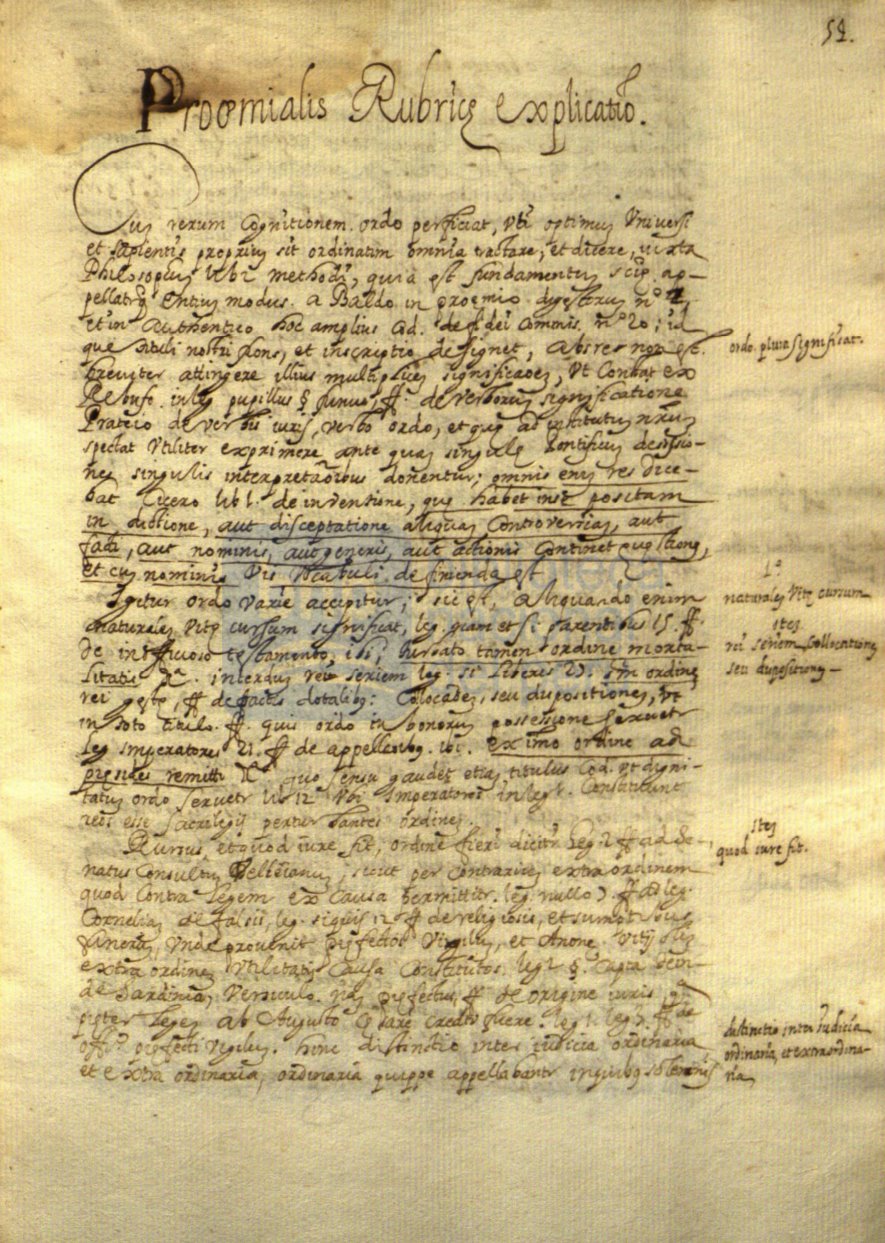 52.
Proœmialis Rubricę explicatio.
Cum rerum Cognitionem ordo perficiat, Vti optimus Vniversi
et sit ordinatim omnia tractare, et dicere, iuxta
methodi, quia est fundamentum ap-
pellatque Entium modus. a Baldo in proemio digestorum nº 2,
et in Authentico hoc amplius Cod. de fidei Commis. nº 20; id
que tituli nostri et inscriptio designet, abs re non est
breviter attingere illius multiplicem significationem, Vt Constat ex
in leg. pupillus § ff. de verborum significatione
Prateio de verbis iuris, verbo ordo, et quę ad institutum nrum
spectat Vtiliter exprimere ante quam singulę Pontificum decisio-
nes singulis interpretationibus donentur; omnis enim res dice-
bat Cicero lib 1. de inventione, quę habet in se positam
in dictione, aut disceptatione aliquam Controversiam, aut
facti, aut nominis, aut generis, aut actionis Continet quęstionem,
et cum nominis Vis Vocabuli definienda est
Igitur ordo varie accipitur; sic est, aliquando enim
naturalem Vitę cursum significat, leg. nam et si parentibus 15. ff.
de inofficioso testamento, ibi; turbato tamen ordine morta-
litatis &c. interdum rei seriem leg. si liberis 27. ordine
rei gestę, ff de pactis dotalibus: Colocationem, seu dispositionem, vt
in toto titulo ff. quis ordo in bonorum possessione servetur
leg Imperatores 21. ff de appellationibus. ibi. ex imo ordine ad
pręsides remitti &c. quo sensu gaudet etiam titulus Cod. vt digni-
tatum ordo servetur lib 12 Vbi Imperatores in leg 1. Constituunt
reos esse sacrilegij perturbantes ordinem.
Rursus, et quod iure fit, ordine fieri dicitur leg. 2 ff ad Se-
natus Consultum Velleianum, sicut per Contrarium extra ordinem
quod Contra legem ex Causa permittitur. leg nullo ff ad leg.
Corneliam de falsis, leg. siquis 12 ff de religiosis, et sumptibus
funerum, Vnde provenit pręfectos Vigilum, et Annonę
extra ordinem Vtilitatis Causa Constitutos. leg 2 §. Capta dein-
de Sardinia, Versiculo. nam pręfectus ff de origine iuris
pręter legem ab Augusto Creditus fuere. leg 1. ff de
offº pręfecti vigilum. hinc distinctio inter iudicia ordinaria
et extra ordinaria, ordinaria quippe appellabantur in quibus solemnis
ordo plura significat.
1º
naturalem Vitę cursum
Item
rei seriem Collocationem,
seu dispositionem
Item
quod iure fit.
distinctio inter iudicia
ordinaria, et extraordina-
ria